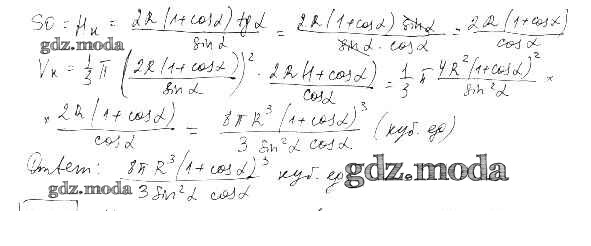 SO = Hк = 2R(1+cosα) tgα / sinα = 2R(1+cosα) sinα / sinα · cosα = 2R(1+cosα) / cosα
gdz.moda
Vк = 1/3 π (2R(1+cosα) / sinα)² · 2R(1+cosα) / cosα = 1/3 π 4R²(1+cosα)² / sin²α ×
× 2R(1+cosα) / cosα = 8πR³(1+cosα)³ / 3 sin²α cosα (куб. ед)
Ответ: 8πR³(1+cosα)³ / 3 sin²α cosα куб. ед
gdz.moda
gdz.moda